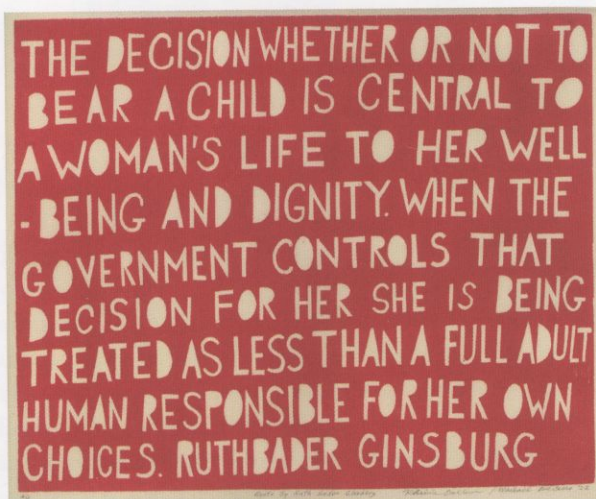 THE DECISION WHETHER OR NOT TO
BEAR A CHILD IS CENTRAL TO
A WOMAN'S LIFE TO HER WELL
-BEING AND DIGNITY. WHEN THE
GOVERNMENT CONTROLS THAT
DECISION FOR HER SHE IS BEING
TREATED AS LESS THAN A FULL ADULT
HUMAN RESPONSIBLE FOR HER OWN
CHOICES. RUTH BADER GINSBURG
Quote by Ruth Bader Ginsburg